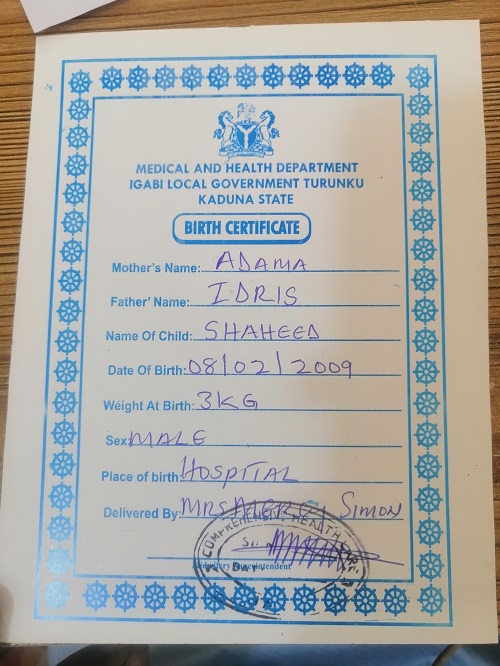 MEDICAL AND HEALTH DEPARTMENT
IGABI LOCAL GOVERNMENT TURUNKU
KADUNA STATE
BIRTH CERTIFICATE
Mother's Name: ADAMA
Father' Name: IDRIS
Name Of Child: SHAHEED
Date Of Birth: 08/02/2009
Weight At Birth: 3KG
Sex MALE
Place of birth: HOSPITAL
Delivered By: MRS MERCY SIMON
COMPREHENSIVE HEALTH
Superintendent